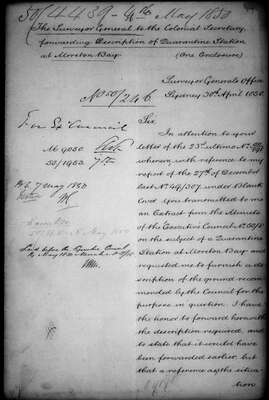 50/4439 - 4th May 1850
The Surveyor General to the Colonial Secretary,
forwarding Description of Quarantine Station
at Moreton Bay. (One Enclosure)
Surveyor Generals Office
Sydney 30th April 1850.
No 50/246.
For Ex Council
Sir
In attention to your
letter of the 23rd ultimo No
wherein with reference to my
report of the 27th of December
last No 49/507, under Blank
Cover you transmitted to me
an Extract from the Minute
of the Executive Council
on the subject of a Quarantine
Station at Moreton Bay and
requested me to furnish a de-
scription of the ground recom-
mended by the Council for the
purpose in question. I have
the honor to forward herewith
the description required, and
to state that it would have
been forwarded earlier but
that a reference as to the situa-
tion
7 May 1850
Laid before the Council
May 1850